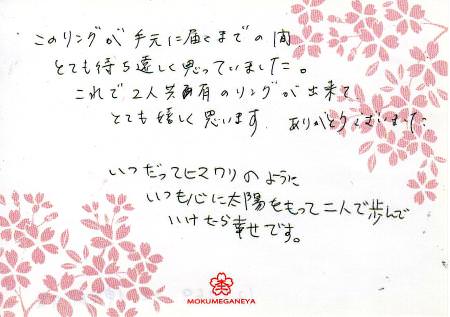 このリングが手元に届くまでの間
とても待ち遠しく思っていました。
これで2人共有のリングが出来て
とても嬉しく思います。ありがとうございました
いつだってヒマワリのように
いつも心に太陽をもって二人で歩んで
いけたら幸せです。
MOKUMEGANEYA